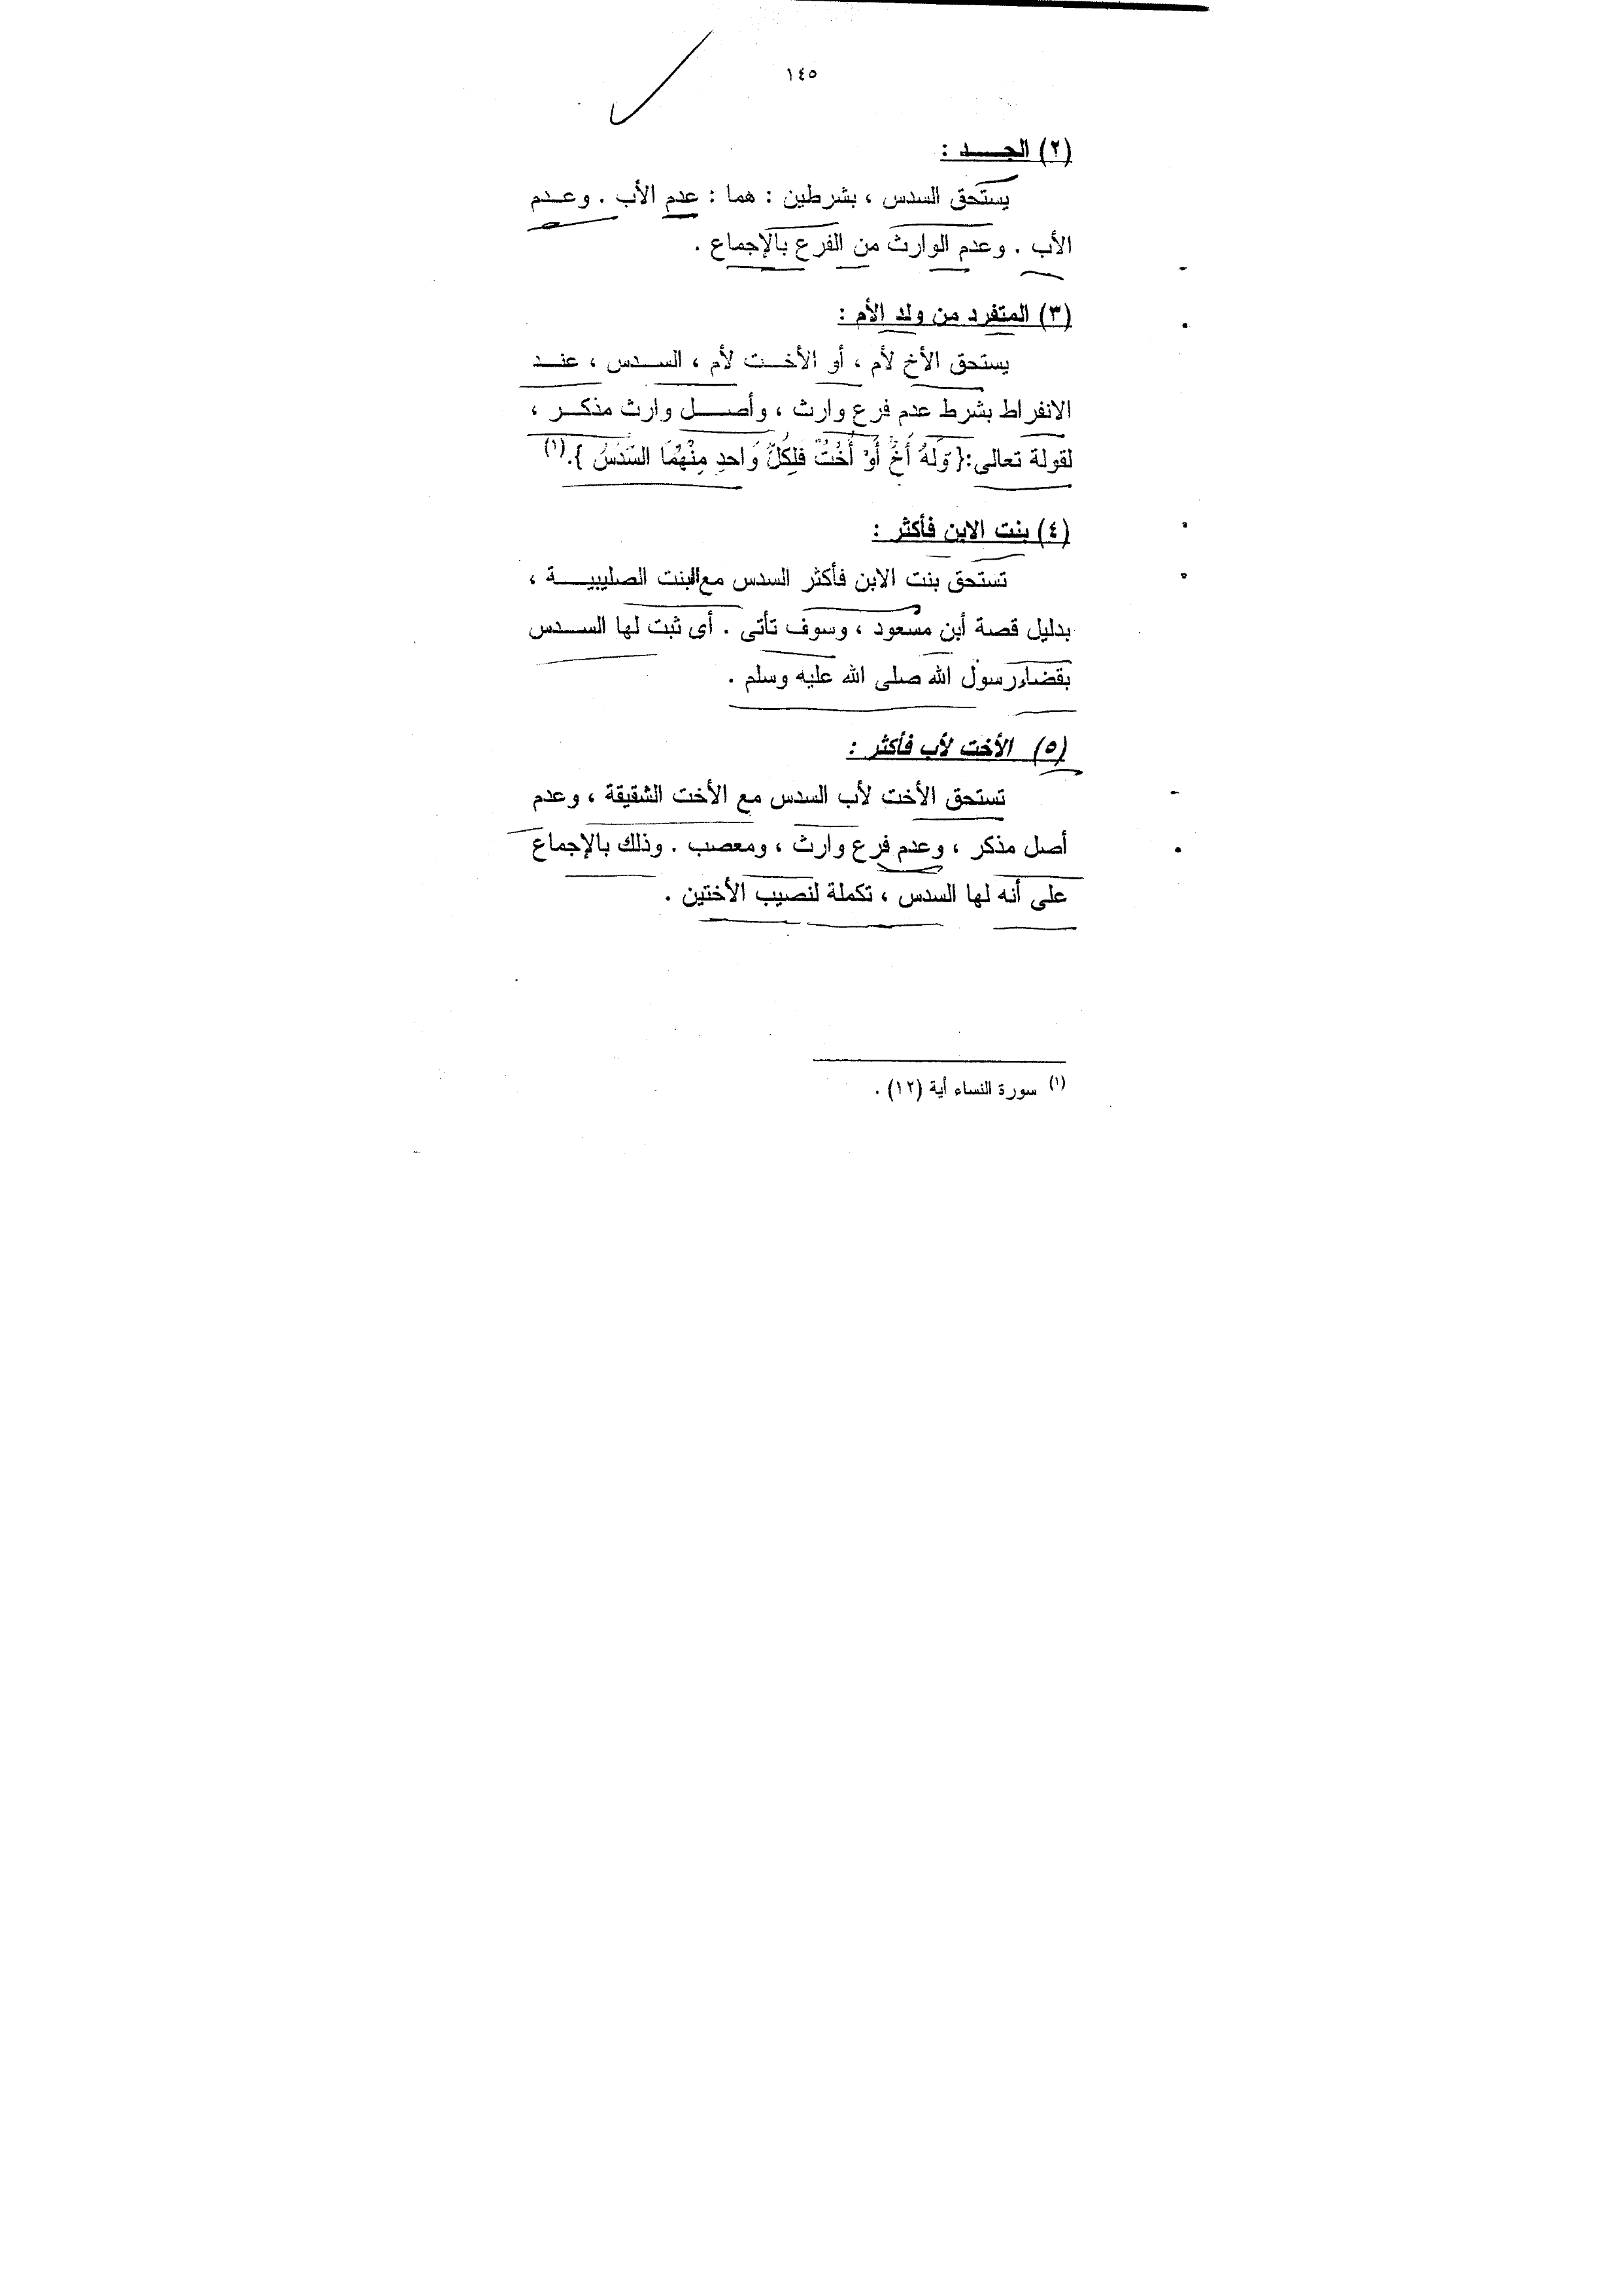 ١٤٥
(٢) الجـــد :
يستحق السدس ، بشرطين : هما : عدم الأب . وعـدم
الأب . وعدم الوارث من الفرع بالإجماع .
(٣) المتفرد من ولد الأم :
يستحق الأخ لأم ، أو الأخـت لأم ، السـدس ، عنـد
الانفراط بشرط عدم فرع وارث ، وأصـل وارث مذكـر ،
لقولة تعالى:{وَلَهُ أَخٌ أَوْ أُخْتٌ فَلِكُلِّ وَاحدٍ مِنْهُمَا السُّدُسُ }.(١)
(٤) بنت الابن فأكثر :
تستحق بنت الابن فأكثر السدس مع البنت الصليبيـة ،
بدليل قصة أبن مسعود ، وسوف تأتى . أى ثبت لها السـدس
بقضاء رسول الله صلى الله عليه وسلم .
(٥) الأخت لأب فأكثر :
تستحق الأخت لأب السدس مع الأخت الشقيقة ، وعدم
أصل مذكر ، وعدم فرع وارث ، ومعصب . وذلك بالإجماع
على أنه لها السدس ، تكملة لنصيب الأختين .
(١) سورة النساء أية (١٢) .